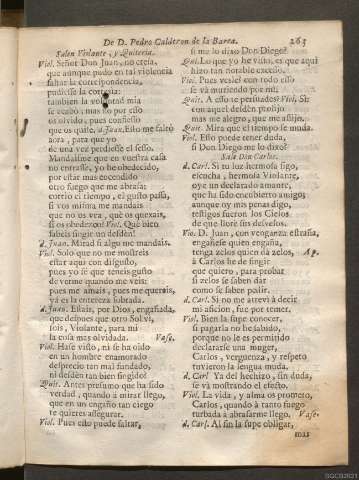 De D. Pedro Calderon de la Barca. 263
Salen Violante, y Quiteria.
Viol. Señor Don Juan, no creìa,
que aunque pudo en tal violencia
faltar la correspondencia,
pudiesse la cortesia:
tambien la voluntad mia
se acabò, mas no por esso
os olvido, pues confiesso
que os quise. d. Juan. Esto me faltò
aora, para que yo
de una vez perdiesse el sesso.
Mandasme que en vuestra casa
no entrasse, yo he obedecido,
por estar mas encendido
otro fuego que me abrasa:
corrio el tiempo, el gusto passa,
si vos misma me mandais
que no os vea, què os quexais,
si os obedezco? Viol. Què bien
sabeis fingir un desdèn!
d. Juan. Mirad si algo me mandais.
Viol. Solo que no me mostreis
estar aqui con disgusto,
pues yo sè que teneis gusto
de verme quando me veis:
pues me amais, pues me quereis,
yà es la entereza sobrada.
d. Juan. Estais, por Dios, engañada,
que despues que otro Sol vì,
sois, Violante, para mì
la cosa mas olvidada. Vase.
Viol. Hase visto, ni se ha oìdo
en un hombre enamorado
desprecio tan mal fundado,
ni desdèn tan bien fingido!
Quit. Antes presumo que ha sido
verdad, quando à mirar llego,
que en un engaño tan ciego
te quieres assegurar.
Viol. Pues esto puede faltar,
si me lo dixo Don Diego?
Qui. Lo que yo he visto, es que aqui
hizo tan notable excesso.
Viol. Pues vès? con todo esso
se và muriendo por mì.
Quit. A esso te persuades? Viol. Sì:
con aquel desdèn prolijo
mas me alegro, que me aflijo.
Quit. Mira que el tiempo se muda.
Viol. Esso puede tener duda,
si Don Diego me lo dixo?
Sale Don Carlos.
d. Carl. Si en luz hermosa sigo,
escucha, hermosa Violante,
oye un declarado amante,
que ha sido encubierto amigo:
aunque oy mis penas digo,
testigos fueron los Cielos
de que lloré sus desvelos.
Vio. D. Juan, con venganza estraña,
engañese quien engaña,
tenga zelos quien dà zelos, Ap.
à Carlos he de fingir
que quiero, para probar
si zelos se saben dar
como se saben pedir.
d. Carl. Si no me atrevì à decir
mi aficion, fue por temer.
Viol. Bien la supe conocer,
si pagarla no he sabido,
porque no le es permitido
declararse una muger,
Carlos, verguenza, y respeto
tuvieron la lengua muda.
d. Carl. Ya del hechizo, sin duda,
se và mostrando el efecto.
Viol. La vida, y alma os prometo,
Carlos, quando à tanto fuego
turbada à abrasarme llego. Vase.
d. Carl. Al fin la supe obligar,